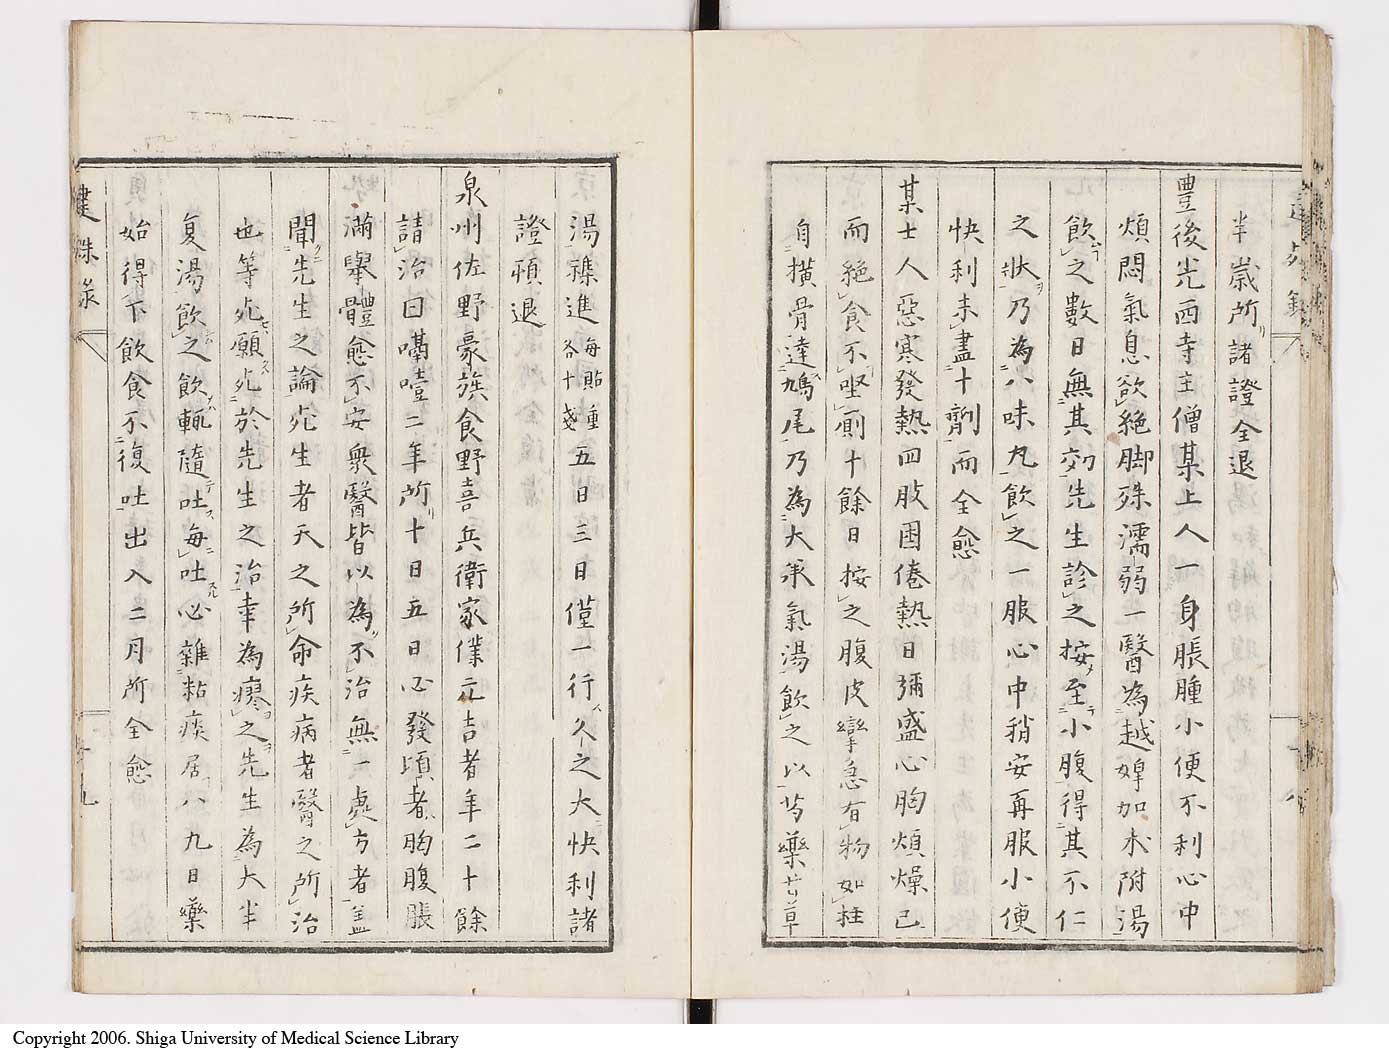 半歲所諸證全退
豊後光西寺主僧某上人一身脹腫小便不利心中
煩悶氣息欲絕脚殊濡弱一醫為越婢加朮附湯
飲之數日無其効先生診之按至小腹得其不仁
之狀乃為八味丸飲之一服心中稍安再服小便
快利未盡十劑而全愈
某士人惡寒發熱四肢困倦熱日彌盛心胸煩燥已
而絕食不坐廁十餘日按之腹皮攣急有物如柱
自橫骨達鳩尾乃為大承氣湯飲之以芍藥甘草
湯襍進每貼重各十戔五日三日僅一行久之大快利諸
證頓退
泉州佐野豪族食野喜兵衛家僕元吉者年二十餘
請治曰噎二年所十日五日必發頃者胸腹脹
滿舉體愈不安衆醫皆以為不治無一處方者蓋
聞先生之論死生者天之所命疾病者醫之所治
也等死願死於先生之治幸為瘳之先生為大半
夏湯飲之飲輒隨吐每吐必雜粘痰居八九日藥
始得下飲食不復吐出入二月所全愈
建殊錄
九
Copyright 2006. Shiga University of Medical Science Library